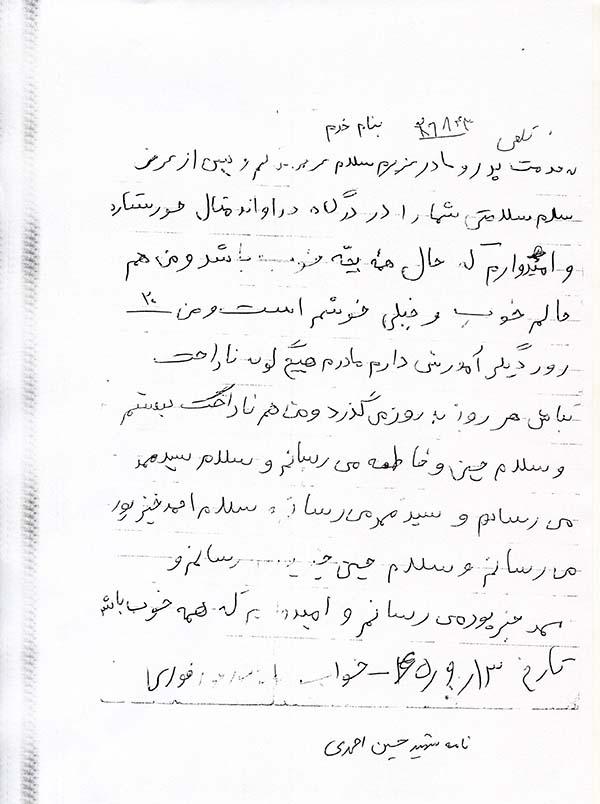 تلفن ۳۶۸۴۳ بنام خدم
خدمت پدر و مادر عزیزم سلام پس از عرض
سلام سلامتی شما را از درگاه خداوند متعال خواستارم
و امیدوارم که حال همه بچه خوب باشد و من هم
حالم خوب و خیلی خوشم است و من ۲۰
روز دیگر آموزشی دارم مادرم هیچ گونه ناراحت
نباش هر روز به روز می گذرد و من هم ناراحت نیستم
و سلام حسین و فاطمه می رسانم و سلام سید محمد
می رسانم و سید محمد می رسانم سلام احمد خیز پور
می رسانم و سلام حسین رسانم و
خیز پور می رسانم و امیدوارم که همه خوب باشد
تارخ ۱۳ر۹ر۶۵ - جواب فوری
نامه شهید حسین احمدی